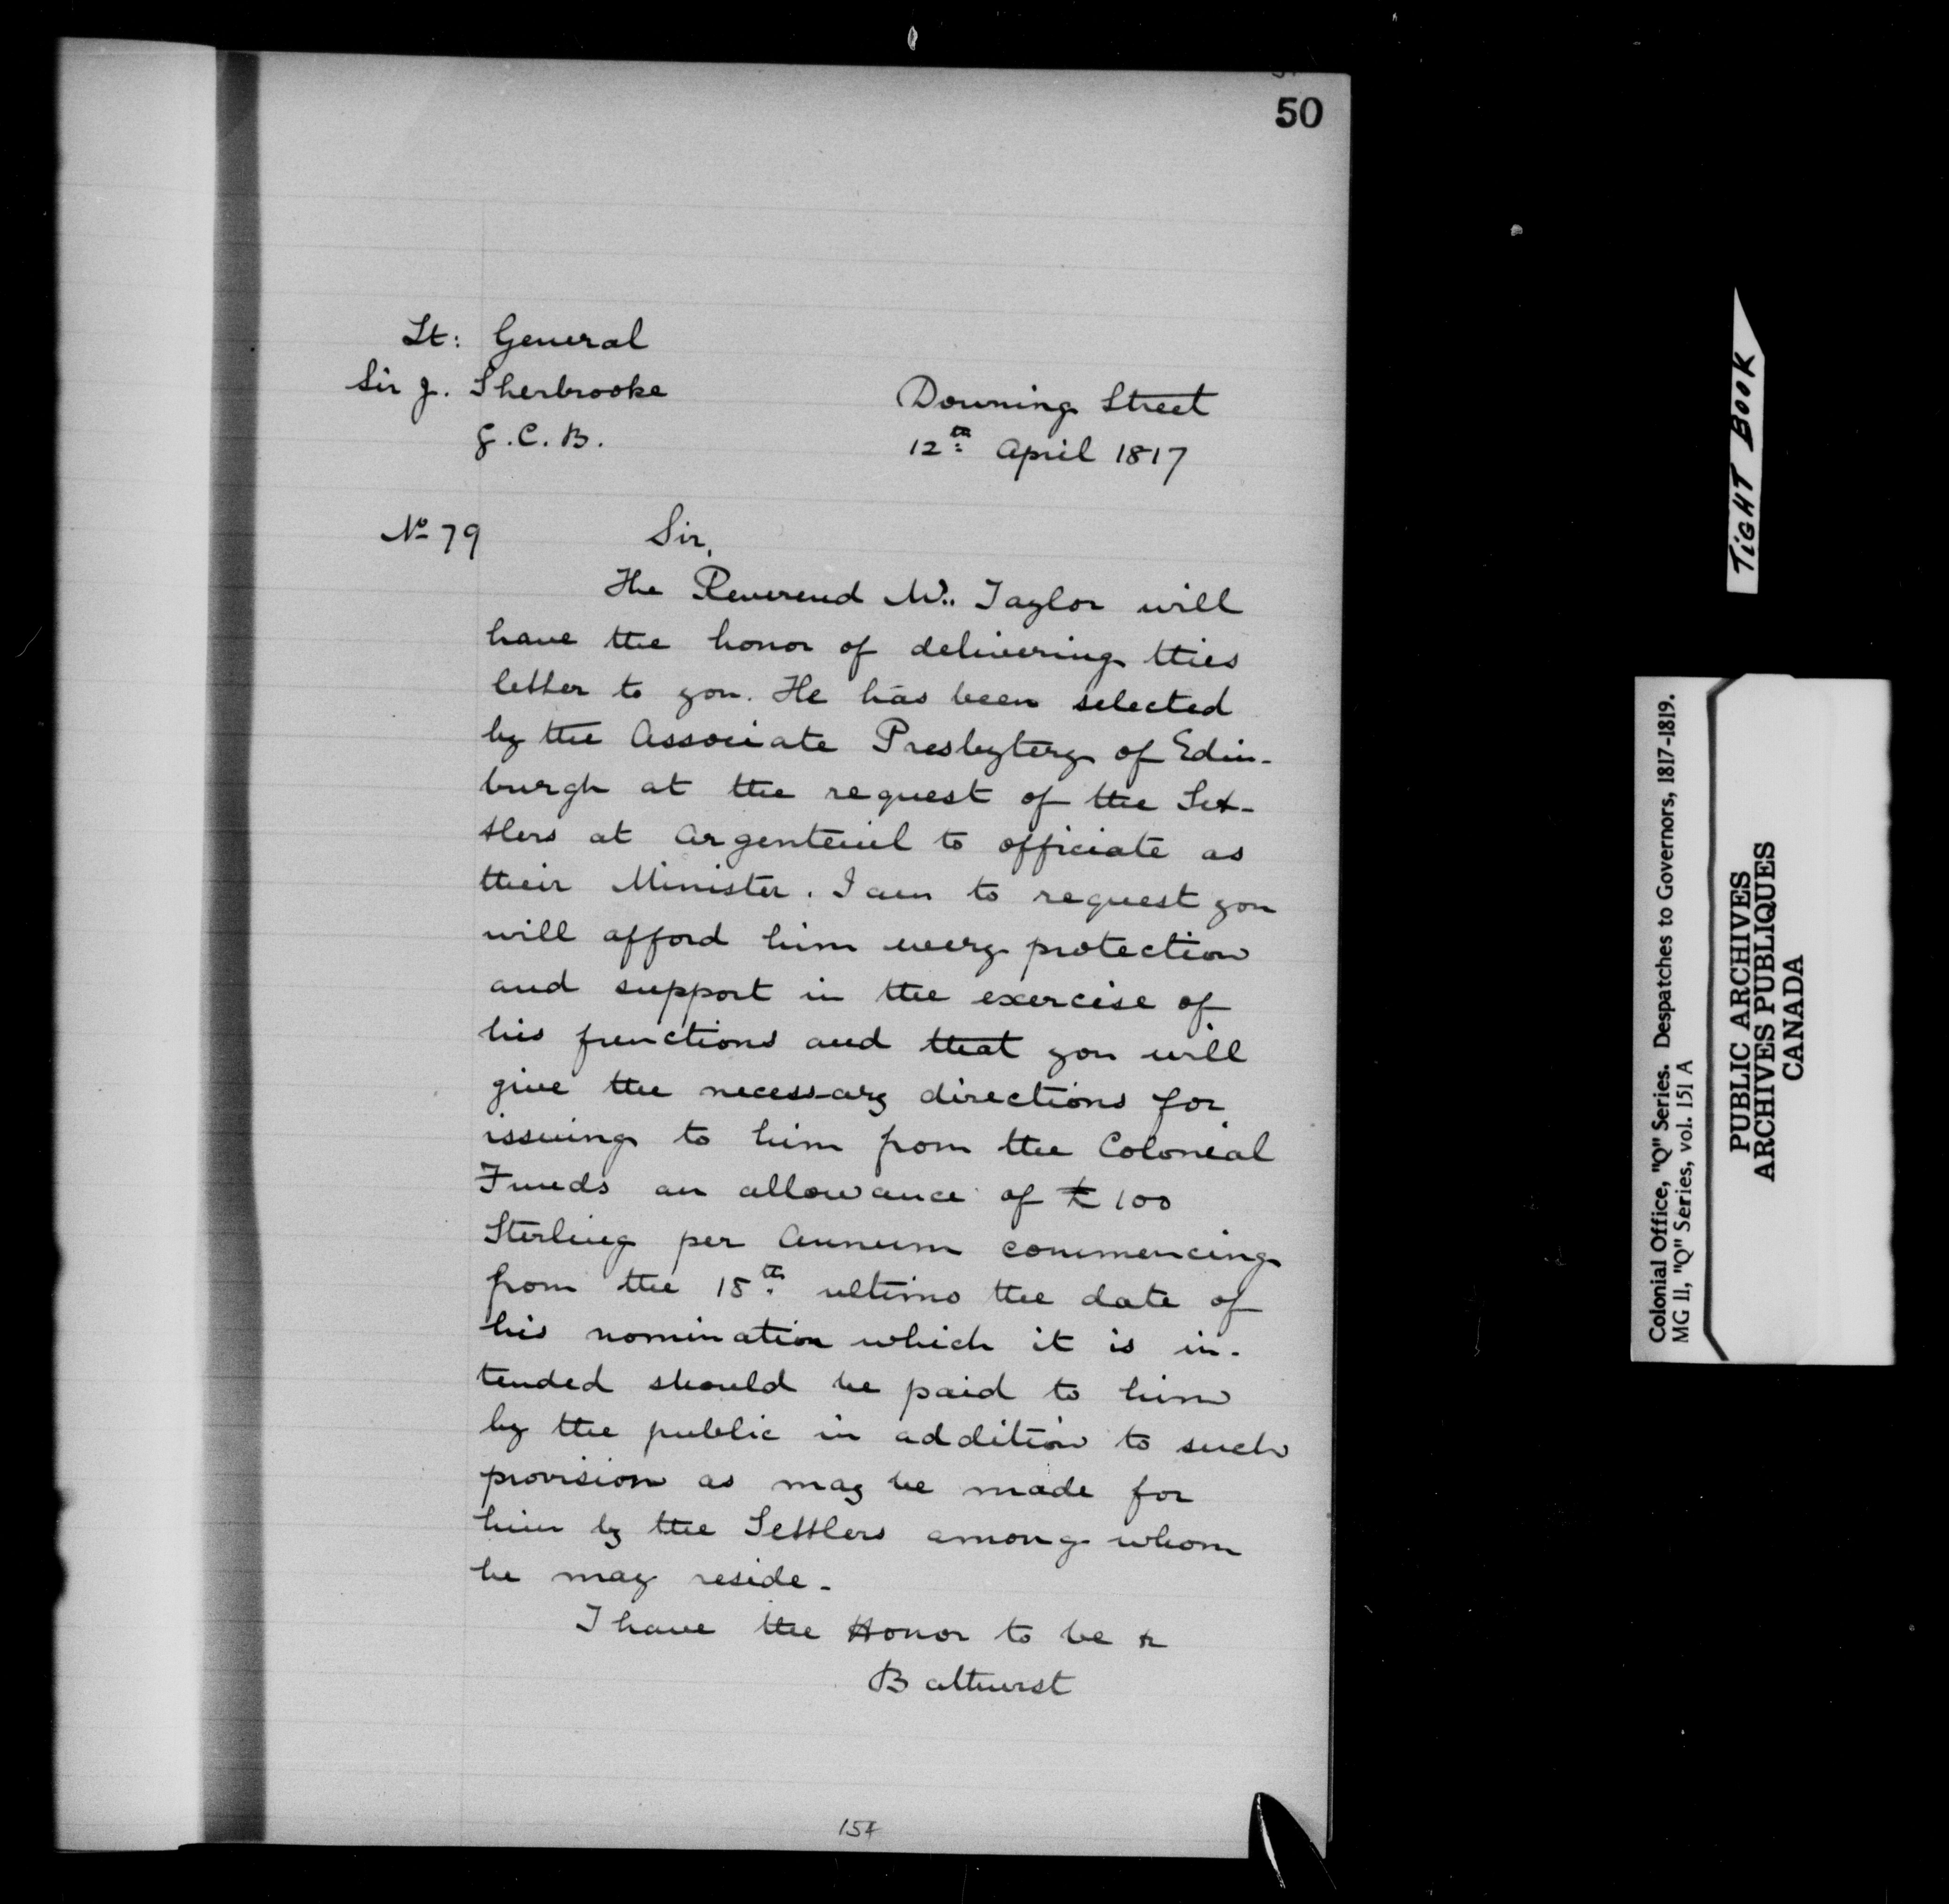 50
Lt: General
Sir J. Sherbrooke
G.C.B.
Downing Street
12th April 1817
No 79
Sir,
The Reverend Mr. Taylor will
have the honor of delivering this
letter to you. He has been selected
by the Associate Presbytery of Edin-
burgh at the request of the Set-
tlers at Argenteuil to officiate as
their Minister. I am to request you
will afford him every protection
and support in the exercise of
his functions and that you will
give the necessary directions for
issuing to him from the Colonial
Funds an allowance of £100
Sterling per Annum commencing
from the 18th ultimo the date of
his nomination which it is in-
tended should be paid to him
by the public in addition to such
provision as may be made for
him by the Settlers among whom
he may reside.
I have the Honor to be &
Bathurst
154
TIGHT BOOK
Colonial Office, "Q" Series. Despatches to Governors, 1817-1819.
MG 11, "Q" Series, vol. 151 A
PUBLIC ARCHIVES
ARCHIVES PUBLIQUES
CANADA